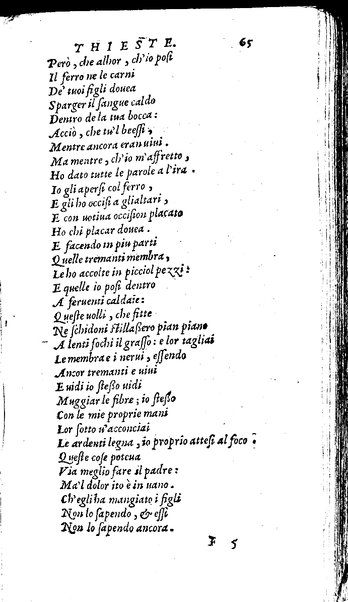 THIESTE. 65
Però, che alhor, ch'io posi
Il ferro ne le carni
De' tuoi figli douea
Sparger il sangue caldo
Dentro de la tua bocca:
Acciò, che tu'l beessi,
Mentre ancora eran uiui.
Ma mentre, ch'io m'affretto,
Ho dato tutte le parole a l'ira.
Io gli apersi col ferro,
E gli ho occisi a gli altari,
E con uotiua occision placato
Ho chi placar douea.
E facendo in piu parti
Quelle tremanti membra,
Le ho accolte in picciol pezzi:
E quelle io posi dentro
A feruenti caldaie:
Queste uolli, che fitte
Ne schidoni stillassero pian piano
A lenti fochi il grasso: e lor tagliai
Le membra e i nerui, essendo
Ancor tremanti e uiui
E uidi io stesso uidi
Muggiar le fibre; io stesso
Con le mie proprie mani
Lor sotto u'acconciai
Le ardenti legna, io proprio attesi al foco:
Queste cose potcua
Via meglio fare il padre:
Ma'l dolor ito è in uano.
Ch'egli ha mangiato i figli
Non lo sapendo, & essi
Non lo sapendo ancora.
F 5